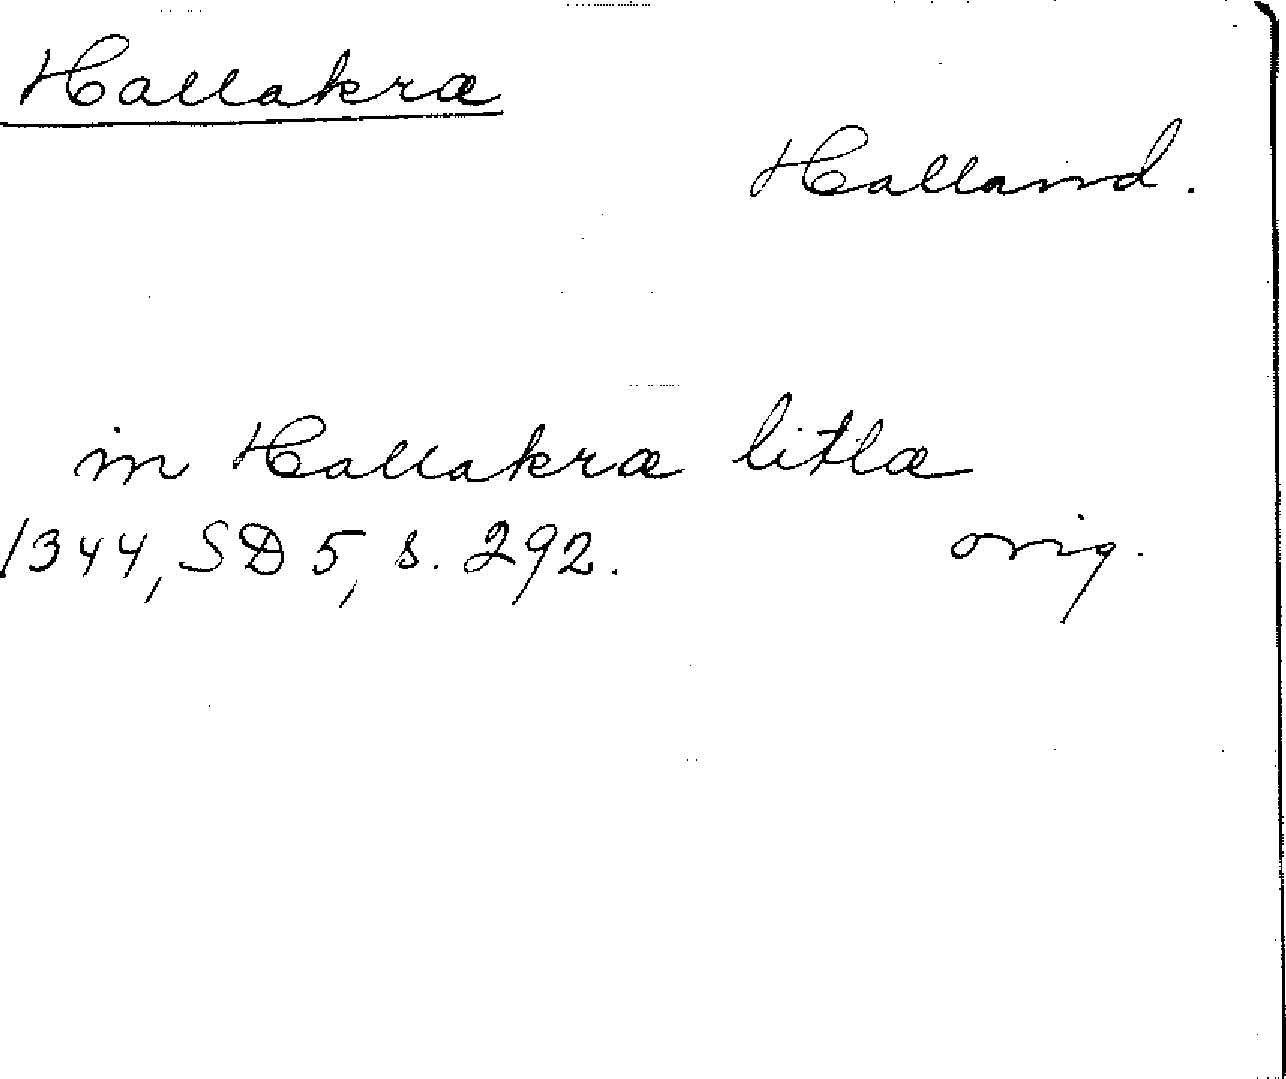 Hallakræ
Halland.
in Hallakræ litlæ
1344, SD 5, s. 292. orig.